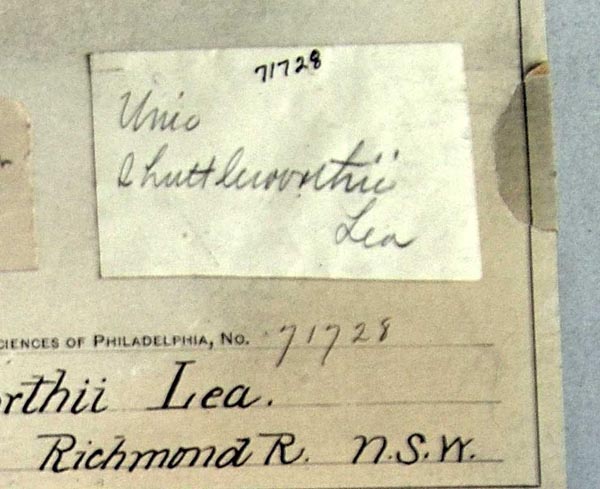 71728
Unio
Shuttleworthii
Lea
CIENCES OF PHILADELPHIA, NO. 71728
rthii Lea.
Richmond R. N.S.W.